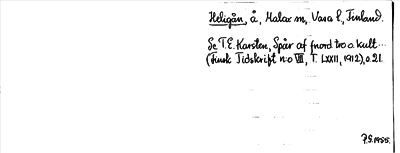 Heligån, å, Malax sn, Vasa l, Finland.
Se T.E. Karsten, Spår af fnord tro o. kult...
(Finsk Tidskrift n:o VII, T. LXXII, 1912), s. 21.
P.S. 1955.